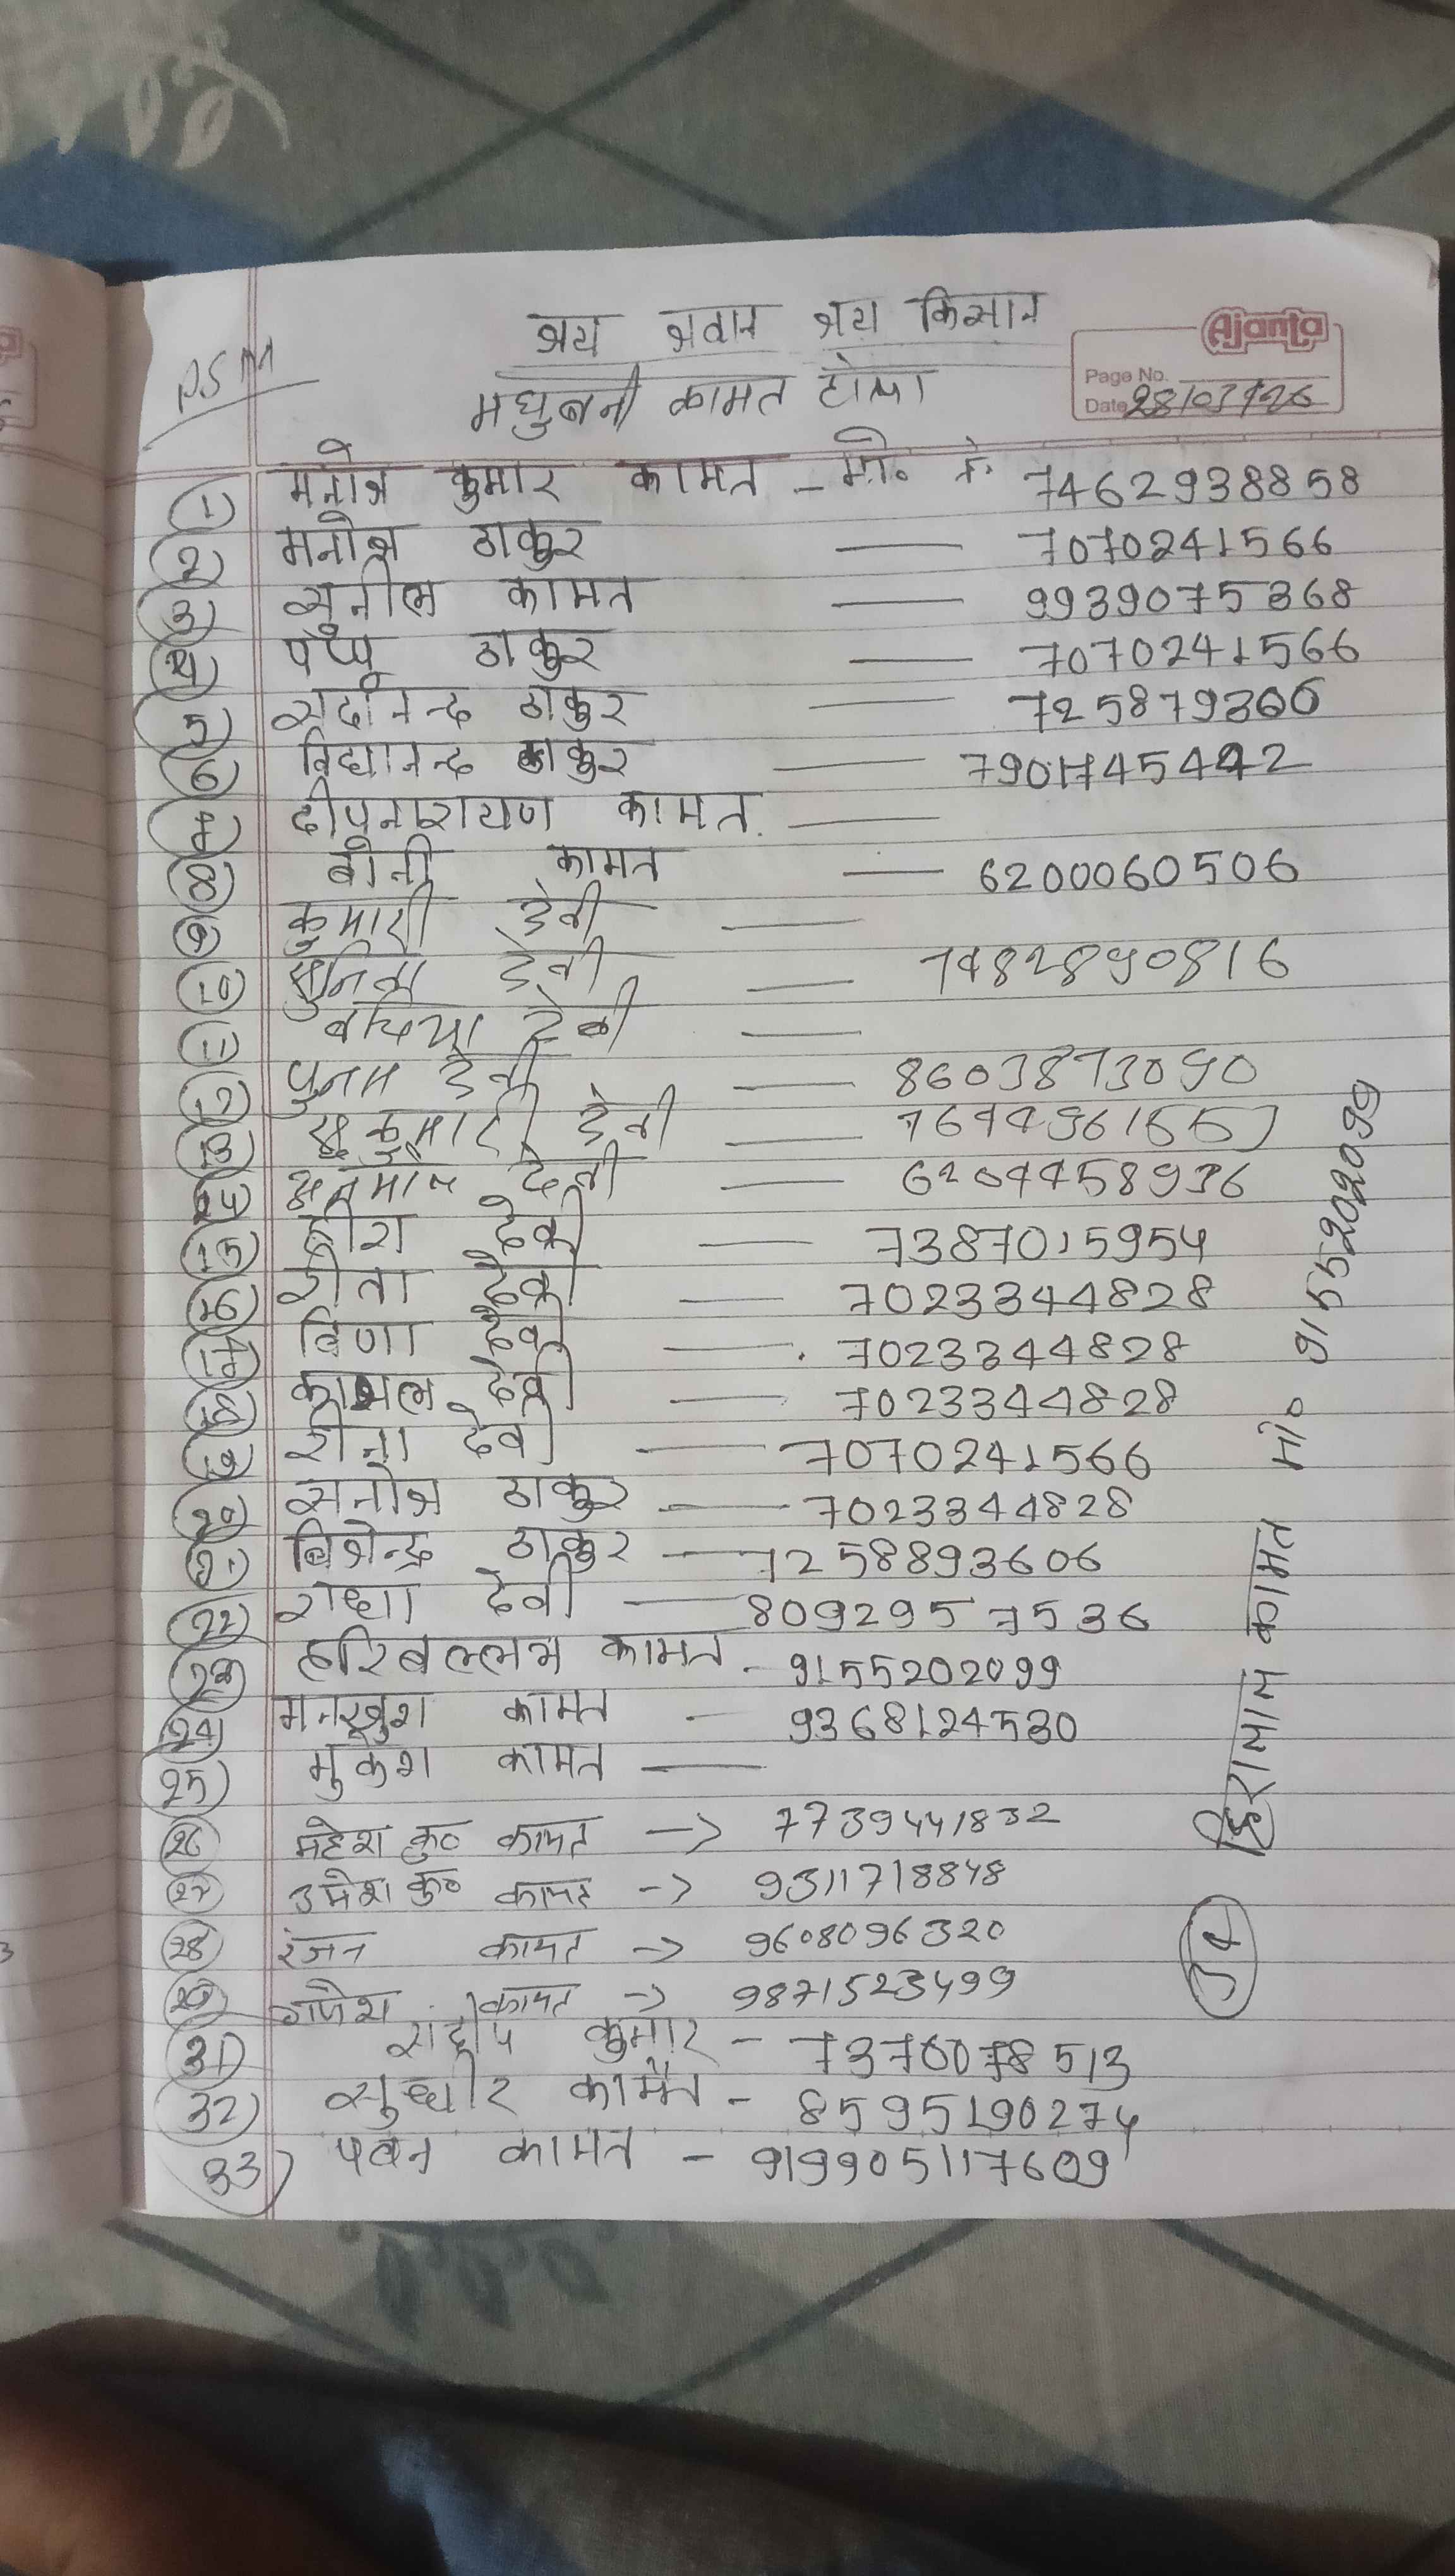 PSM
जय जवान जय किसान
मधुबनी कामत टोला
Ajanta
Page No.
Date 28/03/26
1) मनोज कुमार कामत - मो० नं० 7462938858
2) मनोज ठाकुर — 7070241566
3) सुनील कामत — 9939075368
4) पप्पू ठाकुर — 7070241566
5) सदानन्द ठाकुर — 725879306
6) विद्यानन्द ठाकुर — 7901745442
7) दीपनारायण कामत —
8) बौनी कामत — 6200060506
9) कुमारी देवी —
10) सुनिता देवी — 7482890816
11) बचिया देवी —
12) पुनम देवी — 8603873090
13) सुकुमारी देवी —
14) देवी — 6204458936
15) हीरा देवी — 7387015954
16) रीता देवी — 7023344828
17) विणा देवी — 7023344828
18) काजल देवी — 7023344828
19) रीना देवी — 7070241566
20) सनोज ठाकुर — 7023344828
21) बिजेन्द्र ठाकुर — 7258893606
22) राधा देवी — 8092957536
23) हरिबल्लभ कामत - 9155202099
24) मनखुश कामत - 9368124530
25) मुकेश कामत —
26) महेश कु० कामत -> 7739441832
27) उमेश कु० कामत -> 9311718848
28) रंजन कामत -> 9608096320
29) गणेश कामत -> 9871523499
31) संदीप कुमार - 7370078513
32) सुधीर कामत - 8595190274
33) पवन कामत - 919905117609
34) हिरालाल कामत मो० 9155202099